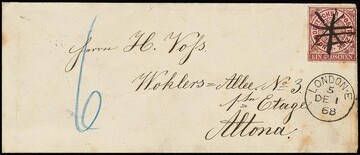 Herrn H. Voss
Wohlers=Allee No 3.
1ste Etage
Altona.
6
EIN GROSCHEN
LONDON-E
5
DE 1
68